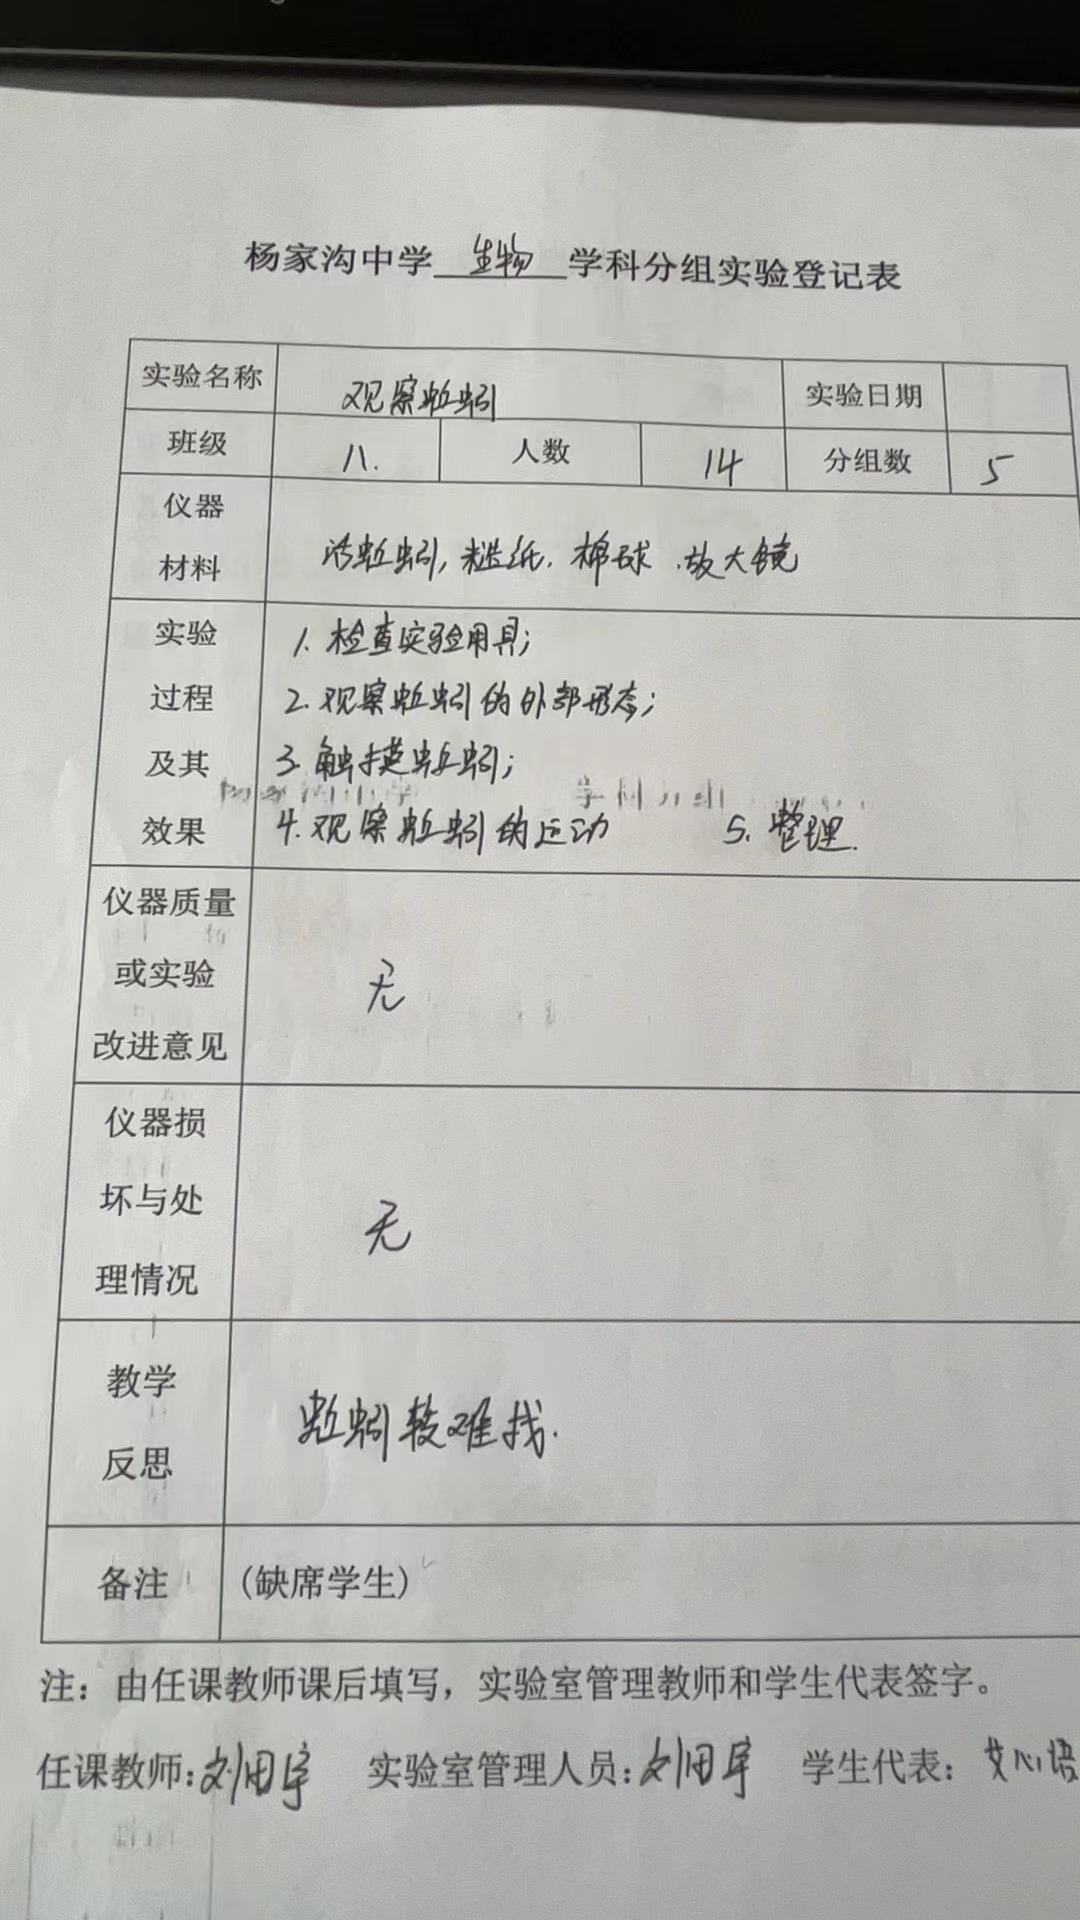 杨家沟中学 生物 学科分组实验登记表
实验名称 观察蚯蚓 实验日期
班级 八. 人数 14 分组数 5
仪器
材料
活蚯蚓, 糙纸. 棉球 .放大镜
实验
过程
及其
效果
1. 检查实验用具;
2. 观察蚯蚓的外部形态;
3. 触摸蚯蚓;
4. 观察蚯蚓的运动 5. 整理.
仪器质量
或实验
改进意见
无
仪器损
坏与处
理情况
无
教学
反思
蚯蚓较难找.
备注 (缺席学生)
注：由任课教师课后填写，实验室管理教师和学生代表签字。
任课教师: 刘田宇 实验室管理人员: 刘田宇 学生代表: 艾心语